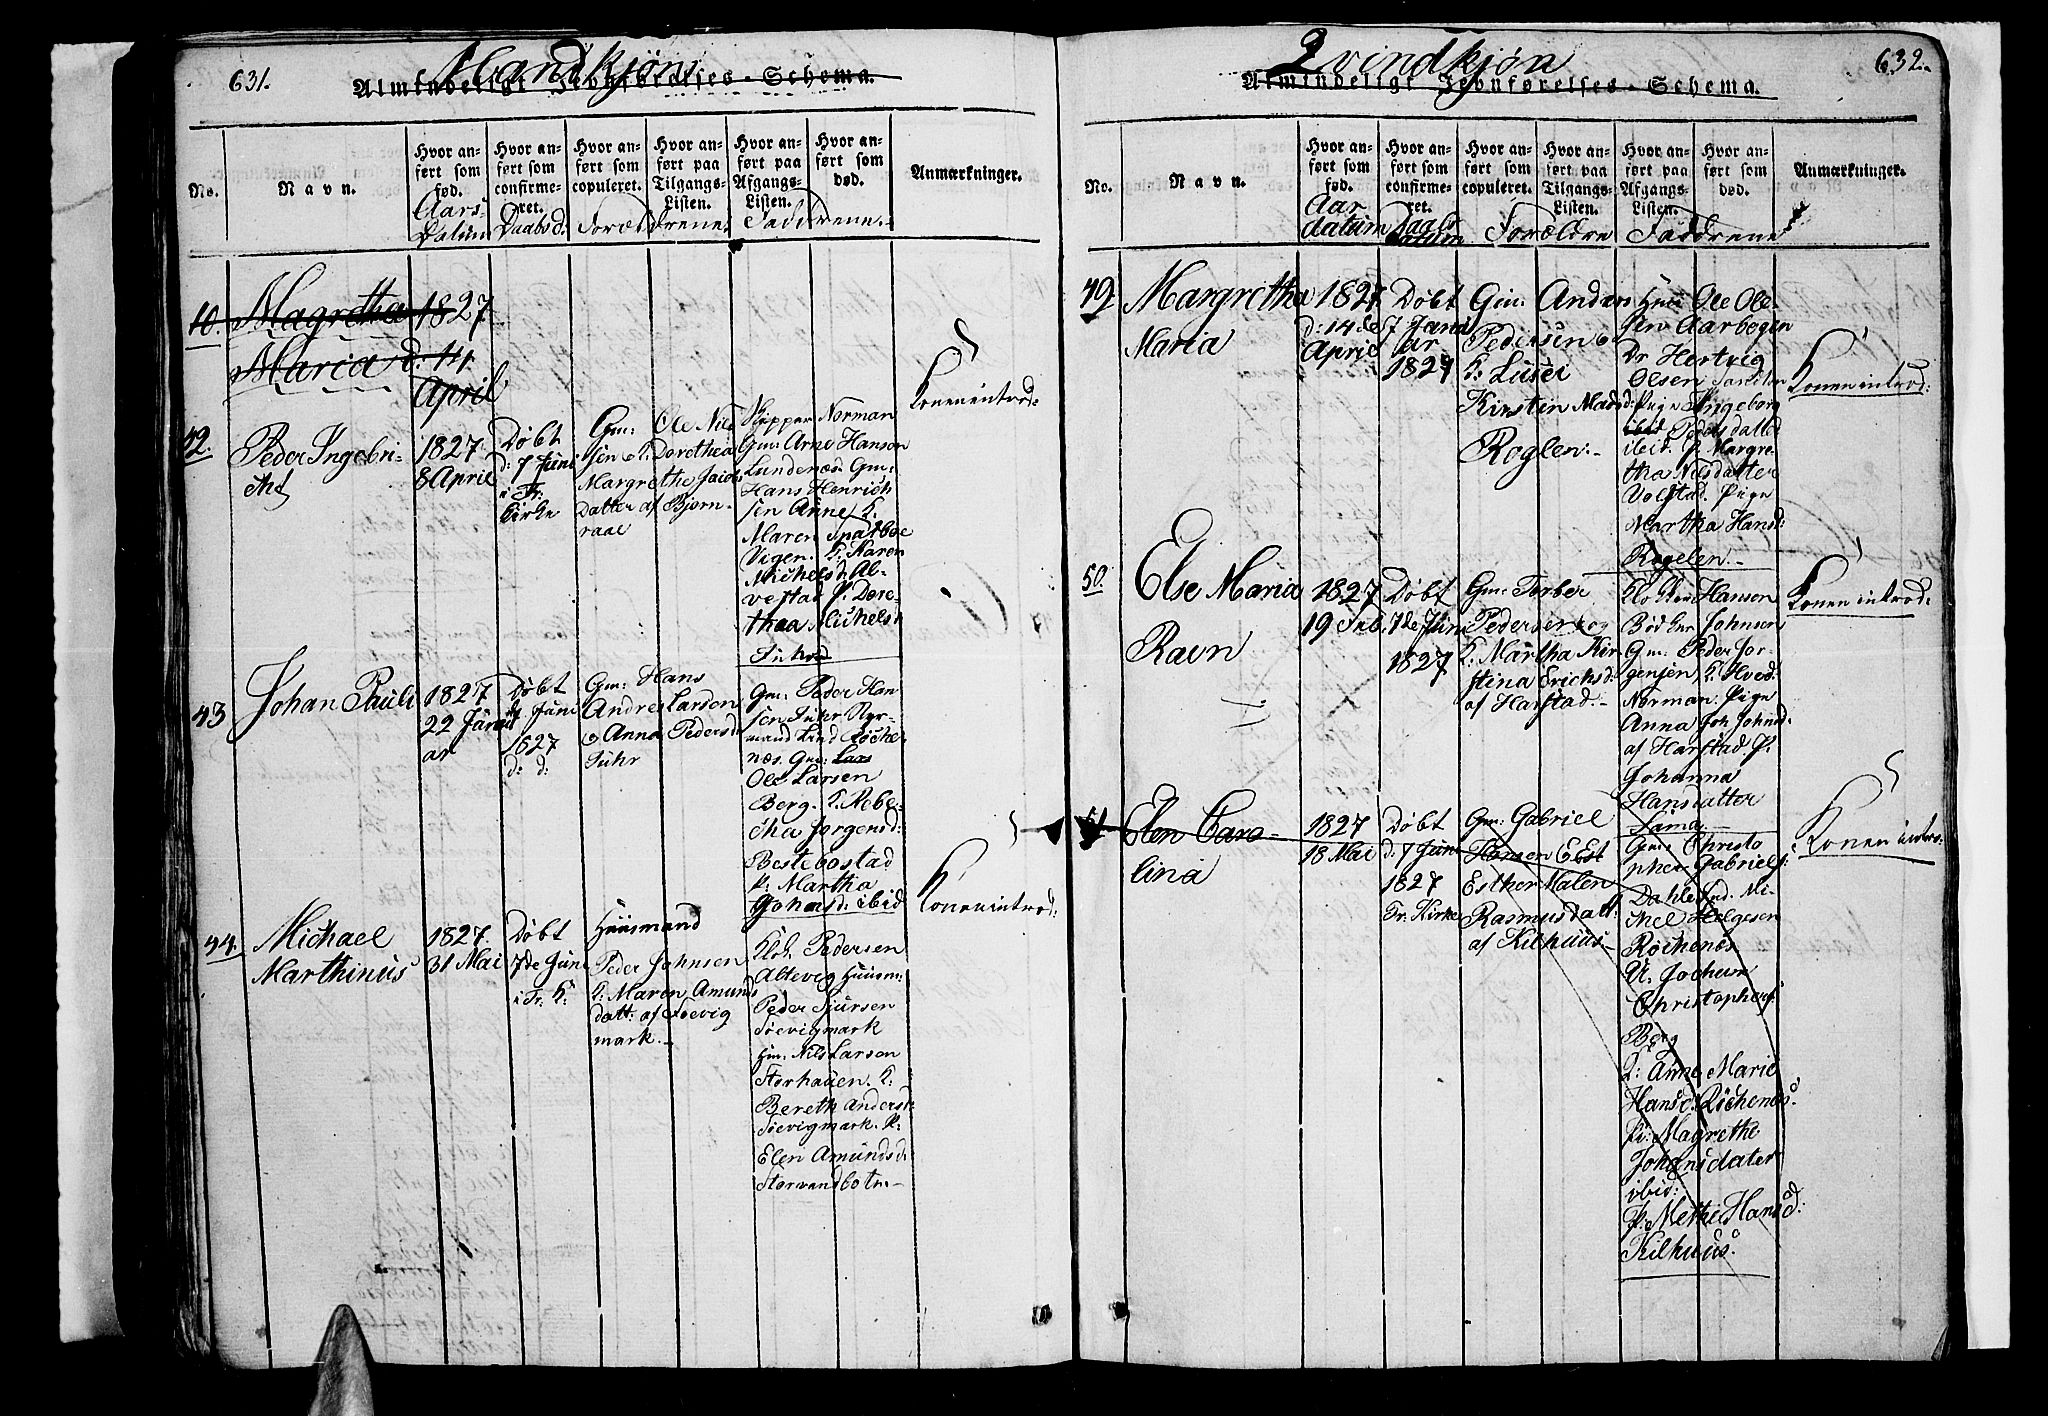 631.
Mandkjøn
Almindeligt Jevnførelses-Schema.
No.
Navn.
Hvor anført som fød.
Hvor anført som confirmeret.
Hvor anført som copuleret.
Hvor anført paa Tilgangs-Listen.
Hvor anført paa Afgangs-Listen.
Hvor anført som død.
Anmærkninger.
Aars-
Datum
Daabsd:
Forældrene
Faddrene
10.
Magretha
Maria
1827
d. 14
April
42.
Peder Ingebri-
1827
8 April
Døbt
d: 7 Juni
i Tr:
Kirke
Gm: Ole Nils
sen o K. Dorothea
Margrethe Jacobs
datter af Bjørn-
raae
Norman
Gm: Arne Hanson
Lundenæs. Gm:
Hans Henrich
sen Anne K.
Maren Sparboe
Vigen. K: Karen
Michelsd: Al-
vestad P. Dore-
thea Michelsd
Konen introd:
43
Johan Pauli
1827
22 Janu
ar
Døbt
7 Juni
1827
d: d:
Gm: Hans
Andres Larsen
o Anna Pedersd
Gm: Peder Han
sen
Røche-
næs. Gm: Lars
Ole Larsen
Berg. K. Rebe-
cha Jørgensd:
Bestebostad
P: Martha
Johansd: ibid
Konen introd:
44.
Michael
Marthinus
1827.
31 Mai
Døbt
7de Juni
i Tr: K:
Huusmand
Peder Johnsen
K: Maren Amunds
datt: af Søevig
mark.-
Pedersen
Altevig Huusm:
Peder Sjursen
Søevigmark
Hm: Nils Larson
Storhauen. K:
Bereth Andersd:
Søevigmark. P:
Elen Amundsd:
Storvandbotn.-
632.
Qvindkjøn
Almindeligt Jevnførelses-Schema.
No.
Navn.
Hvor anført som fød.
Hvor anført som confirmeret.
Hvor anført som copuleret.
Hvor anført paa Tilgangs-Listen.
Hvor anført paa Afgangs-Listen.
Hvor anført som død.
Anmærkninger.
Aar
datum
Daabs
Datum
Forældre
Faddrene
49
Margretha
Maria
1827.
d: 14de
April
Døbt
1827
Gm: Anders
Pedersen o
K: Lusei
Kirsten Madsd:
Roglen:-
Ole Ole-
sen Aarbogen
Dr Hertvig
Olsen
Pige Ingeborg
Pedersdatter
ibid. P. Margre-
tha Nilsdatter
Volstad. Pige
Martha Hansd:
Rogelen.-
Konen introd:
50.
Else Maria
Ravn
1827
19 Feb.
Døbt
7de Juni
1827
Gm: Torber
Pedersen og
K: Martha Kir
stina Erichsd:
af Harstad.-
Klokker Hanson
Bødker Johnsen
Gm: Peder Jør-
gensen K. Hved:
Norman. Pige
Anna Joh. Johnsd:
af Harstad P.
Johanna
Hansdatter
Sama.
Konen introd:
51
Elen Caro-
lina
1827
18 Mai
Døbt
d. 7 Juni
1827
Tr. Kirke
Gm: Gabriel
Hansen & Est
Esther Malen
Rasmusdatt:
af Kilhuus-
Gm: Christo
pher Gabriels:
Dahle Gm. Mi-
chel Helgesen
Røchenes
U. Jochum
Christophers:
Berg
K: Anne Marie
Hansd: Røchenes.
P: Magrethe
Johansdater
ibid:
P. Methe Hansd:
Kilhuus.
Konen intro: